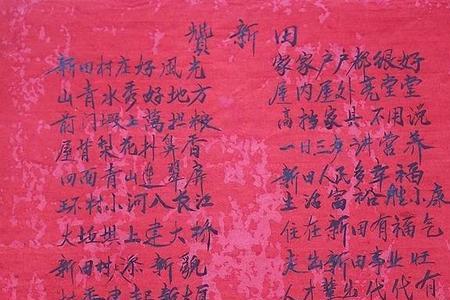 赞新田
新田村庄好风光
山青水秀好地方
前门垅上万担粮
屋背梨花扑鼻香
四面青山进翠屏
环村小河八长江
大垴
上建大桥
新田村添新貌
家家户户都很好
屋内屋外亮堂堂
高档家具不用说
一日三歺讲营养
新田人民多幸福
生活富裕胜小康
住在新田有福气
走出新田事业旺
人才辈出代代有